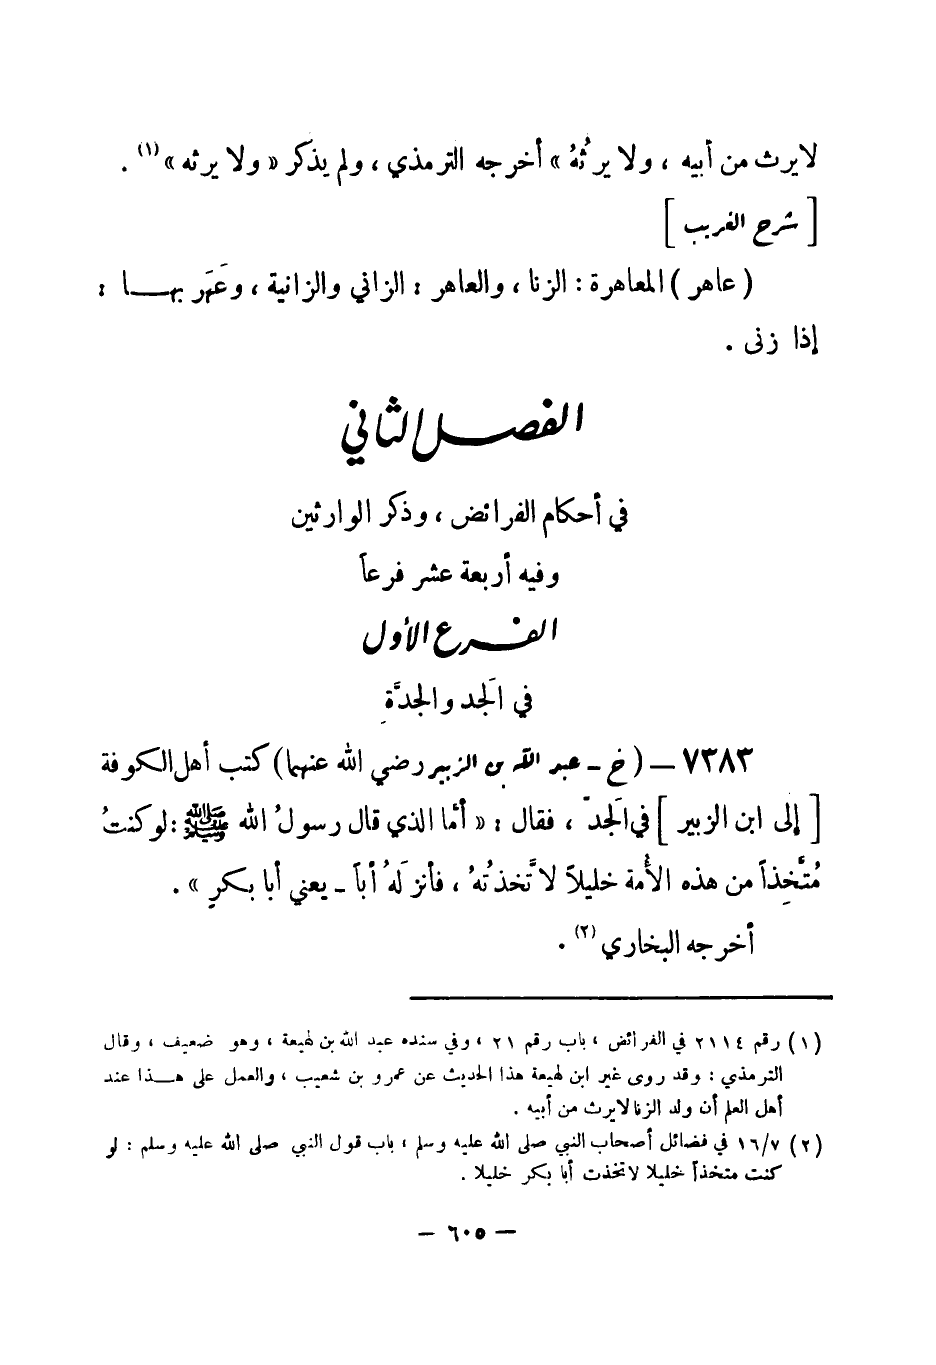 لا يرث من أبيه ، ولا يرثُهُ » أخرجه الترمذي ، ولم يذكر « ولا يرثه » (١) .
[ شرح الغريب ]
( عاهر ) المعاهرة : الزنا ، والعاهر : الزاني والزانية ، وعَهَر بهـــا :
إذا زنى .
الفصل الثاني
في أحكام الفرائض ، وذكر الوارثين
وفيه أربعة عشر فرعاً
الفرع الأول
في الجَد والجِدَّة
٧٣٨٣ – ( خ - عبد الله بن الزبير رضي الله عنهما ) كتب أهل الكوفة
[ إلى ابن الزبير ] في الجَدّ ، فقال : « أمّا الذي قال رسولُ الله ﷺ : لو كنتُ
مُتَّخِذاً من هذه الأُمة خليلاً لاتَّخذتُهُ ، فأنزلَهُ أباً ـ يعني أبا بكرٍ » .
أخرجه البخاري (٢) .
(١) رقم ٢١١٤ في الفرائض ، باب رقم ٢١ ، وفي سنده عبد الله بن لهيعة ، وهو ضعيف ، وقال
الترمذي : وقد روى غير ابن لهيعة هذا الحديث عن عمرو بن شعيب ، والعمل على هـــذا عند
أهل العلم أن ولد الزنا لايرث من أبيه .
(٢) ١٦/٧ في فضائل أصحاب النبي صلى الله عليه وسلم ، باب قول النبي صلى الله عليه وسلم : لو
كنت متخذاً خليلا لاتخذت أبا بكر خليلا .
– ٦٠٥ –